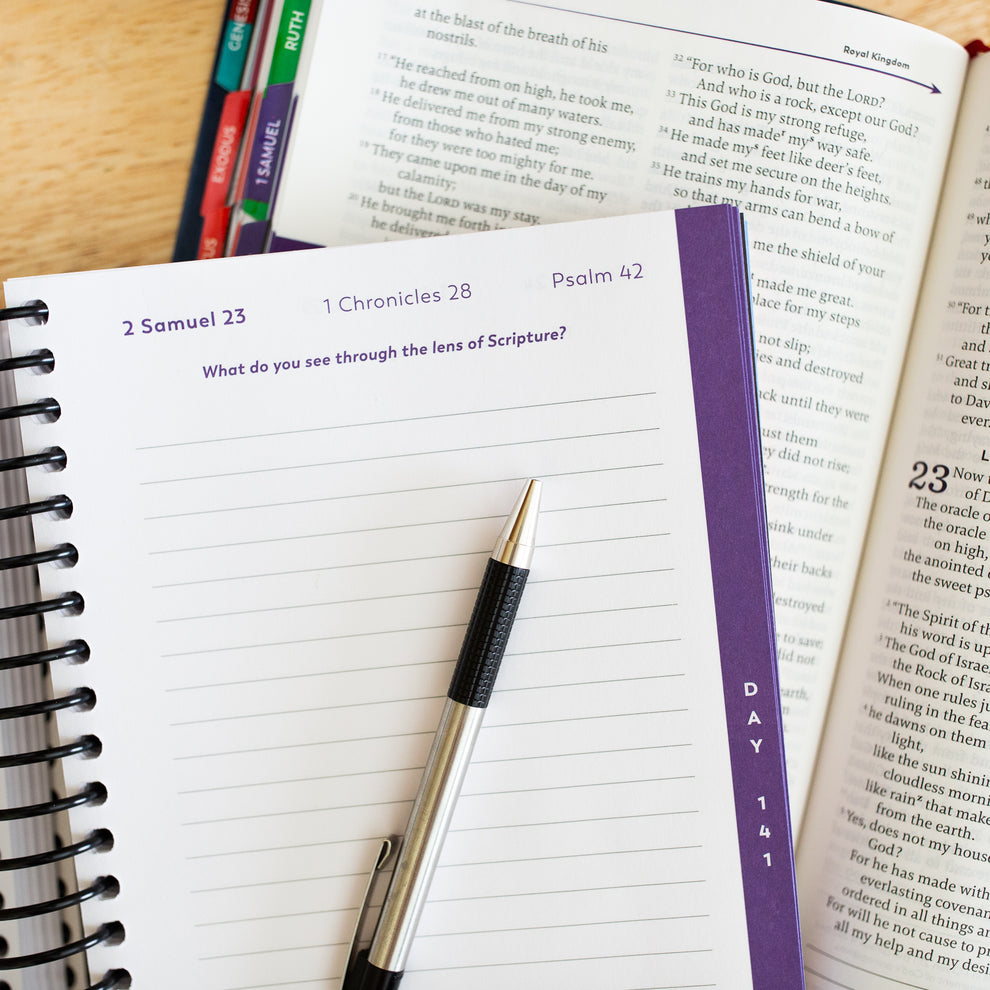 GENESIS
EXODUS
RUTH
1 SAMUEL
Royal Kingdom
at the blast of the breath of his
nostrils.
17 “He reached from on high, he took me,
he drew me out of many waters.
18 He delivered me from my strong enemy,
from those who hated me;
for they were too mighty for me.
19 They came upon me in the day of my
calamity;
but the LORD was my stay.
20 He brought me forth
he delivered
32 “For who is God, but the LORD?
And who is a rock, except our God?
33 This God is my strong refuge,
and has made my way safe.
34 He made my feet like deer’s feet,
and set me secure on the heights.
35 He trains my hands for war,
so that my arms can bend a bow of
me the shield of your
made me great.
place for my steps
not slip;
ies and destroyed
ack until they were
ust them
ey did not rise;
rength for the
sink under
heir backs
estroyed
to save;
did not
earth,
2 Samuel 23
1 Chronicles 28
Psalm 42
What do you see through the lens of Scripture?
DAY 141
50 “For t
th
and
51 Great tr
and s
to Dav
ever.
23 Now
of D
The oracle o
the oracle
on high,
the anointed
the sweet ps
2 “The Spirit of th
his word is up
3 The God of Israe
the Rock of Isra
When one rules ju
ruling in the fea
4 he dawns on them
light,
like the sun shinin
cloudless morni
like rain that make
from the earth.
5 “Yes, does not my hous
God?
For he has made with
everlasting covenan
ordered in all things an
For will he not cause to pr
all my help and my desi